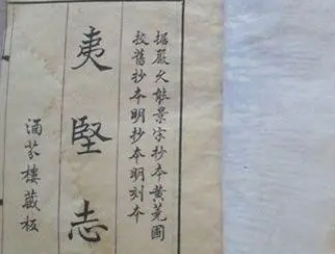 据嚴久能景宋抄本黄蕘圃
校舊抄本明抄本明刻本
夷堅志
涵芬樓藏板